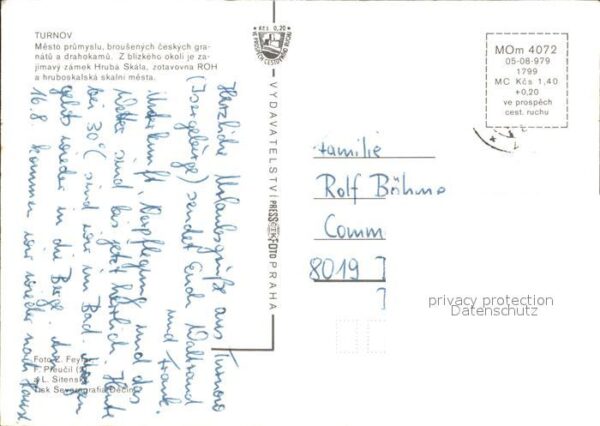 TURNOV
Město průmyslu, broušených českých gra-
nátů a drahokamů. Z blízkého okolí je za-
jímavý zámek Hrubá Skála, zotavovna ROH
a hruboskalská skalní města.
Kčs 0,20
VE PROSPĚCH CESTOVNÍHO RUCHU
MOm 4072
05-08-979
1799
MC Kčs 1,40
+0,20
ve prospěch
cest. ruchu
VYDAVATELSTVÍ PRESSFOTO PRAHA
ČTK
Herzliche Urlaubsgrüße aus Turnov
(Isergebirge) sendet Euch Waltraud
und Frank.
Unterkunft, Verpflegung und das
Wetter sind bis jetzt herrlich. Heute
bei 30° sind wir im Bad morgen
geht's wieder in die Berge. Am
16.8. kommen wir wieder nach Hause
Familie
Rolf Böhme
Comm
8019
privacy protection
Datenschutz
Foto Z. Feyfar
F. Přeučil
a L. Sitenský
Tisk Severografia Děčín